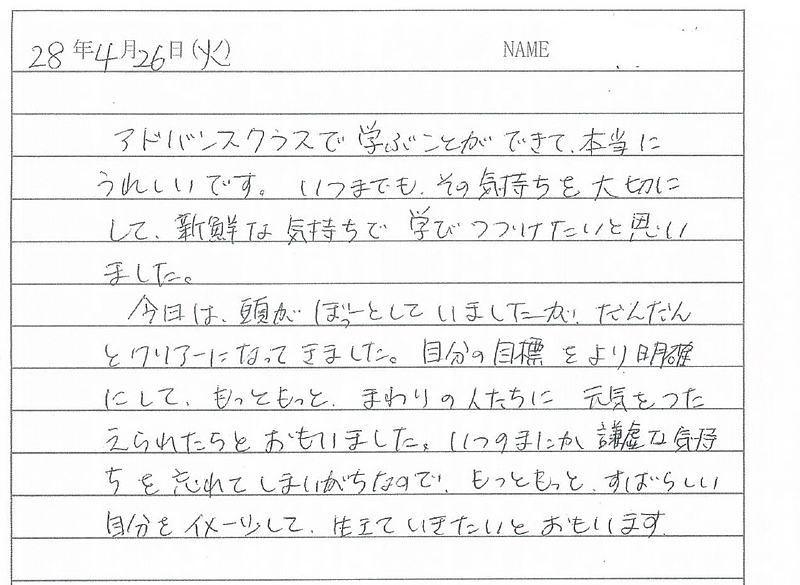 28年4月26日(火) NAME
アドバンスクラスで学ぶことができて、本当に
うれしいです。いつまでも、その気持ちを大切に
して、新鮮な気持ちで学びつづけたいと思い
ました。
今日は、頭がぼーっとしていましたが、だんだん
とクリアーになってきました。自分の目標をより明確
にして、もっともっと、まわりの人たちに元気をつた
えられたらとおもいました。いつのまにか謙虚な気持
ちを忘れてしまいがちなので、もっともっと、すばらしい
自分をイメージして、生きていきたいとおもいます。